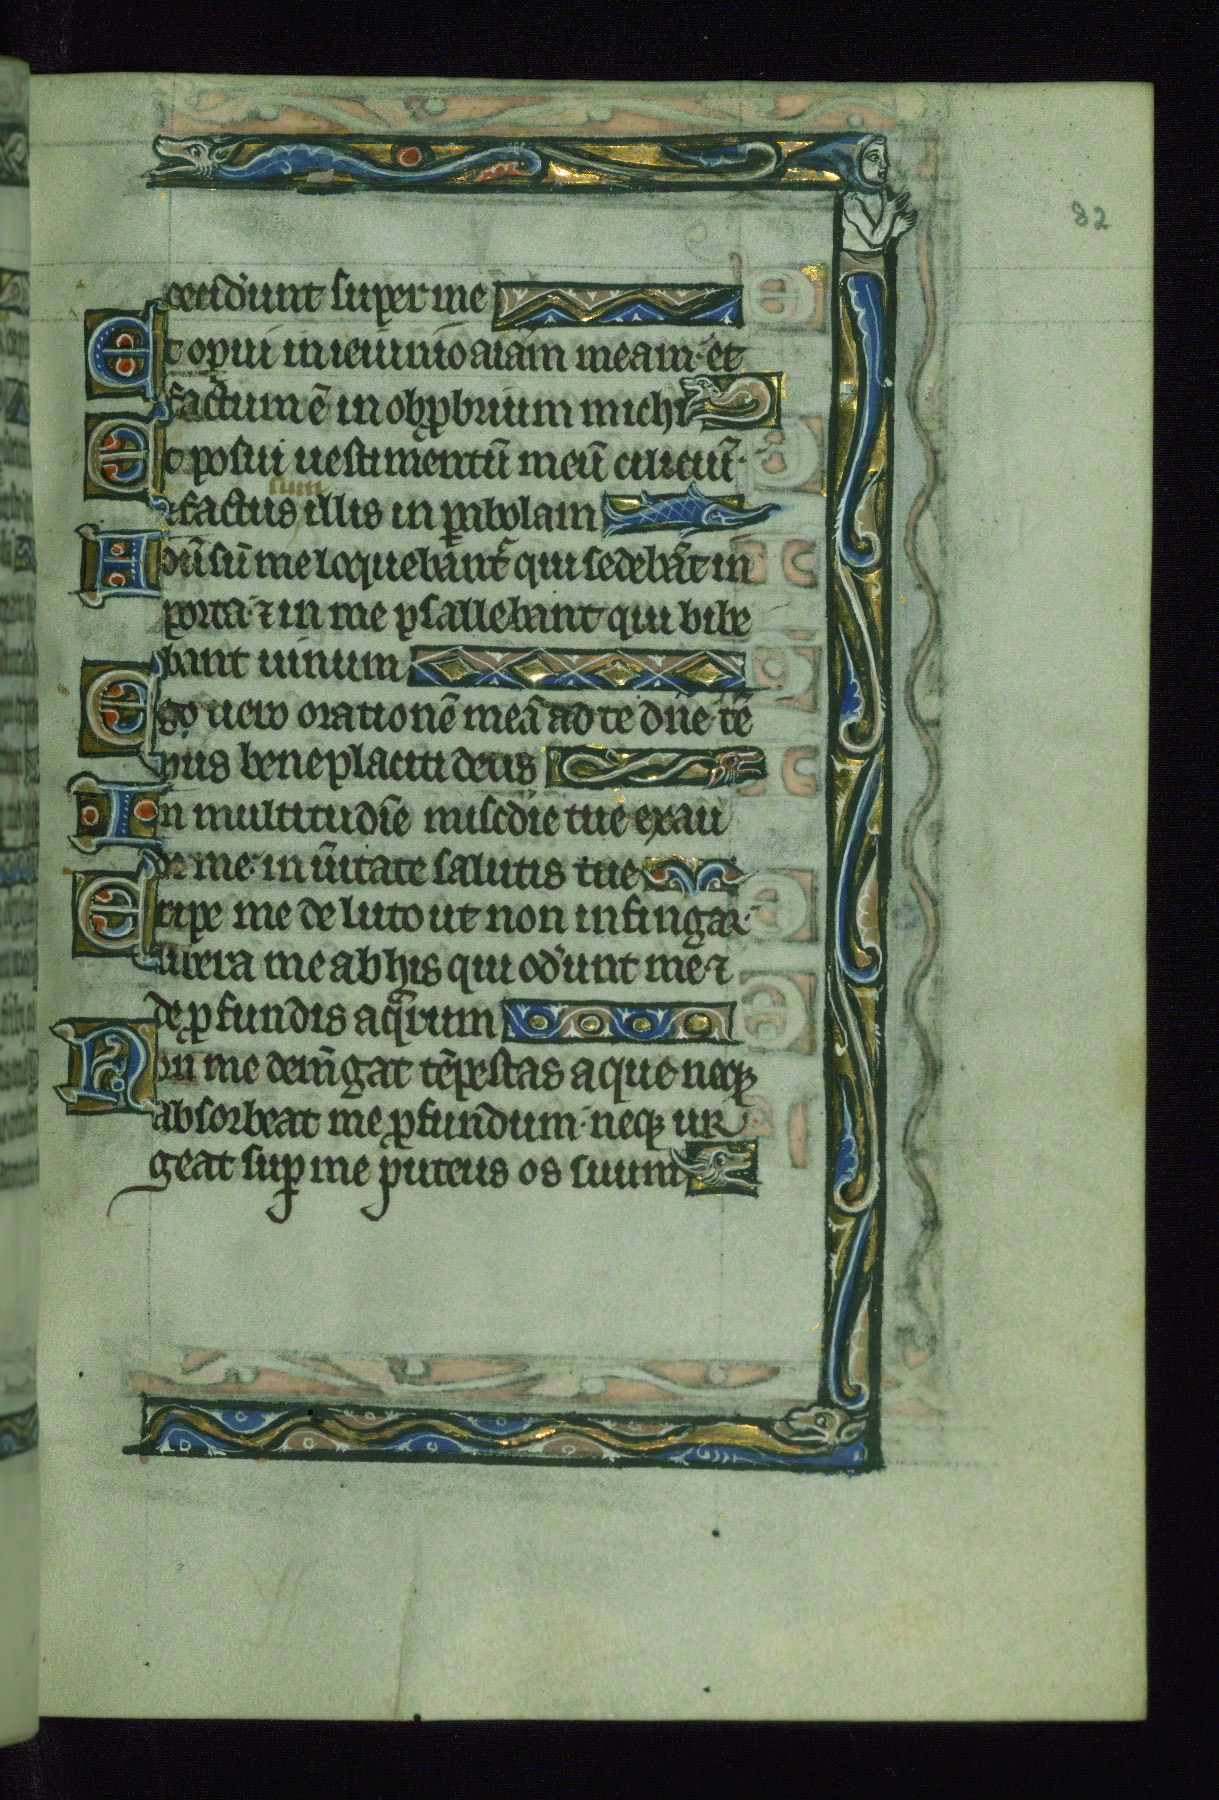 82
ceciderunt super me
Et op̲ui in ieiunio aīam meam· et
factum ē in obp̲brium michi
Et posui uestimentū meū ciliciū·
⁊ factus sum illis in p̲abolam
Aduersū me loquebant᷑ qui sedebāt in
porta· ⁊ in me psallebant qui bibe
bant uinum
Ego uero orationē meā ad te dn̄e tē
pus beneplaciti deus
In multitudīe misc̄dīe tue exau
di me· in ūitate salutis tue
Eripe me de luto ut non infingar·
libera me ab his qui od̓unt me ⁊
de p̲fundis aqͣrum
Non me dem̄gat tēpestas aque neqꝫ
absorbeat me p̲fundum· neqꝫ ur
geat sup̲ me puteus os suum